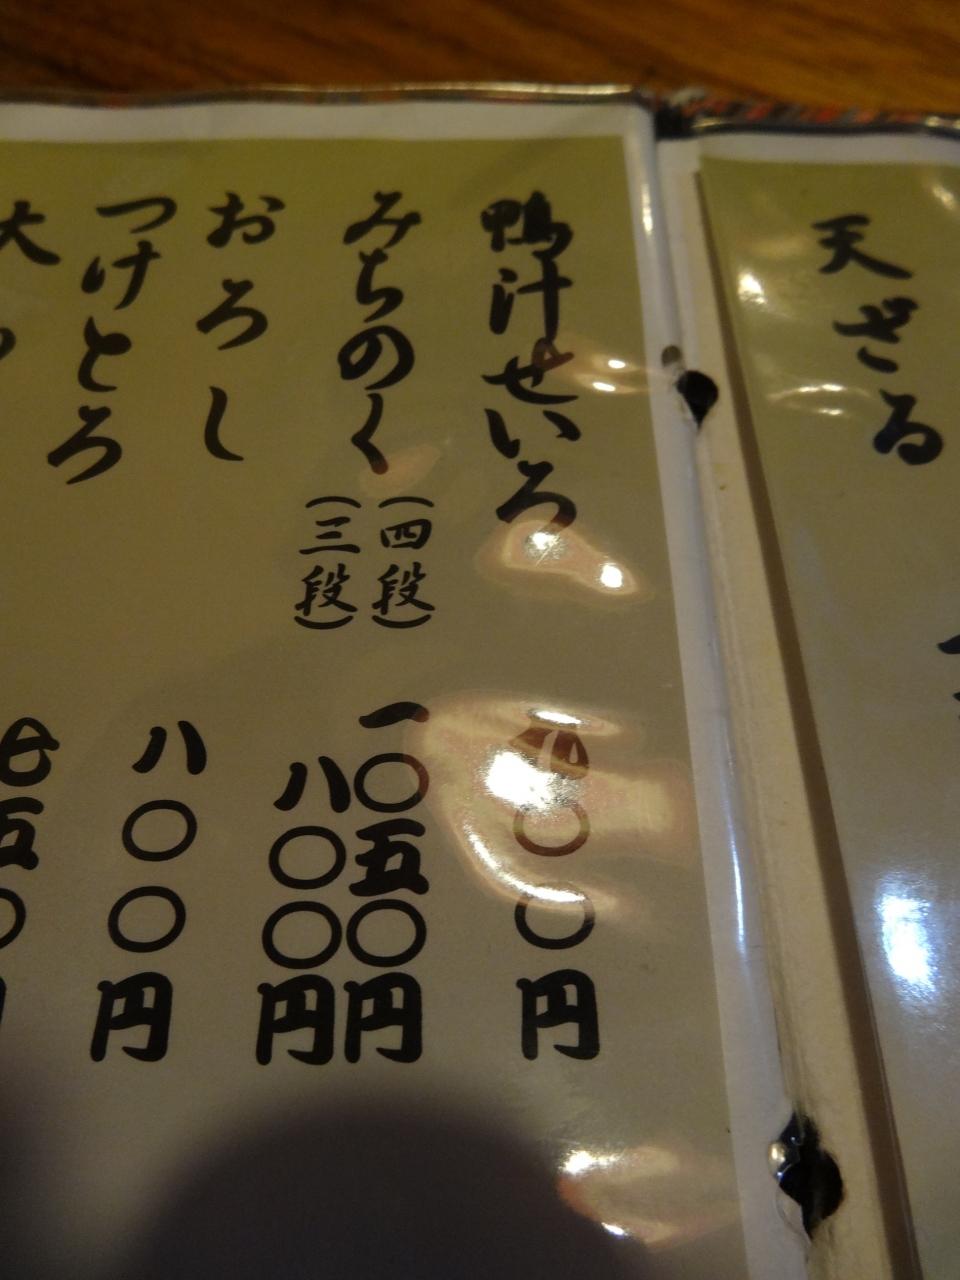 天ざる
鴨汁せいろ
〇〇円
みちのく
（四段）
一〇五〇円
（三段）
八〇〇円
おろし
八〇〇円
つけとろ
七五〇
大